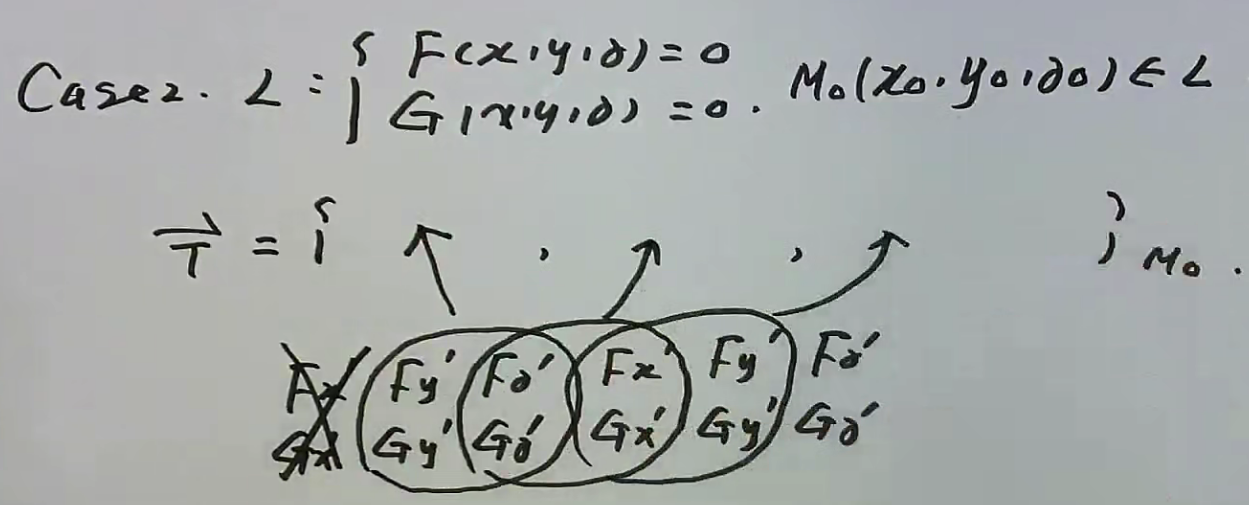 Case2. L: { F(x,y,z)=0
G(x,y,z)=0. M₀(x₀,y₀,z₀)∈L
T⃗ = { , , }M₀.
Fx Fy′ Fz′ Fx′ Fy′ Fz′
Gx Gy′ Gz′ Gx′ Gy′ Gz′